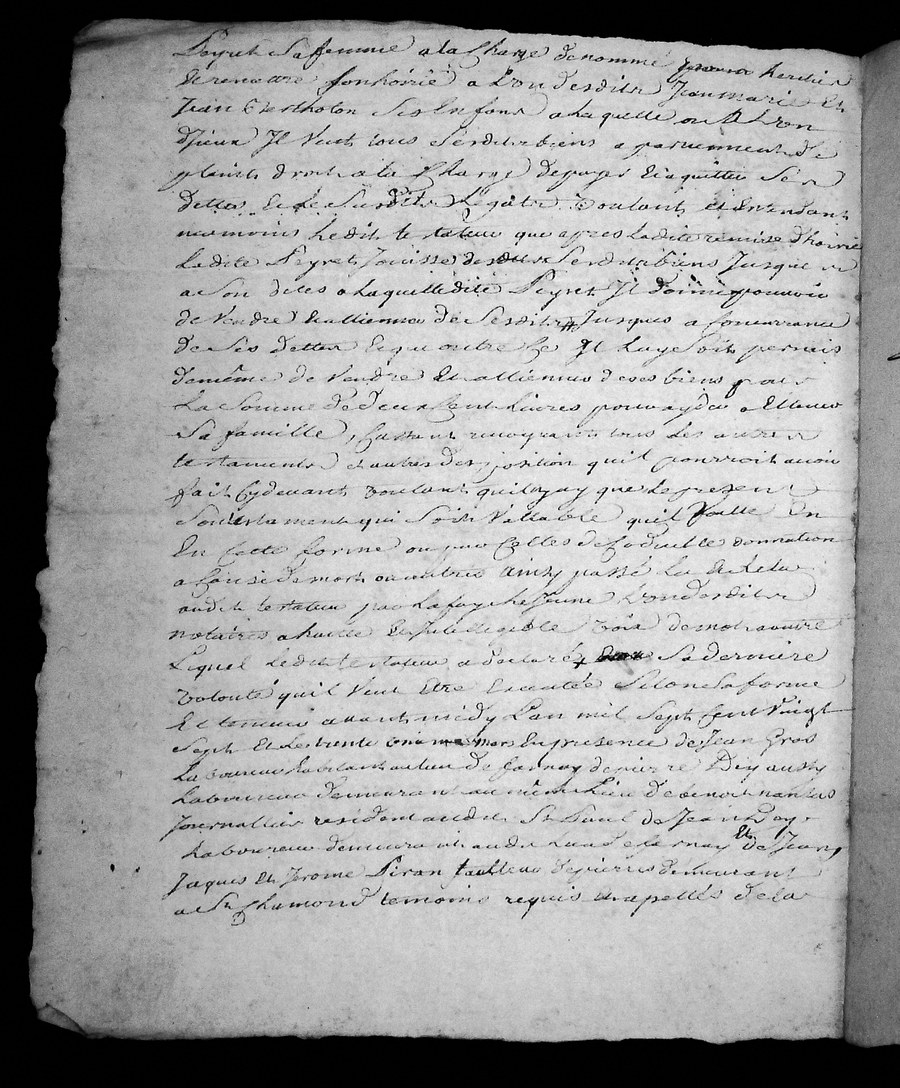 Peyret sa femme a la Charge de nommé pour heritier
de remettre son hoirie a L'un desdits Jean Marie Et
Jean Bertholon ses Enfans a laquelle ou
Il Veut tous sesdits biens a parviennent de
plaint droit a la Charge de payer Et aquitter ses
dettes Et Le susdits Legats voulant Et Entendant
neanmoins Ledit testateur que apres Ladite remise d'hoirie
Ladite Peyret Jouisse de sesdits biens Jusques
a son deces a laquelle dite Peyret Il donne pouvoir
de Vendre Et alliener de sesdits Jusques a concurrance
de ses dettes Et qu outre Ce Il luy soit permis
de même de Vendre Et alliener de ses biens pour
La somme de deux Cent Livres pour ayder a Elever
sa famille, Cassant revoquant tous Les autres
testaments Et autres disposition quil pourroit avoir
fait Cy devant voulant quil ny ay que Le present
son testament qui soit Vallable quil Vaille En
En Cette forme ou par Celles de Codicille donnation
a Cause de mort ou autres ainsy passé Lu Et relu
audit testateur par Lafay Le Jeune L'un desdits
notaires a haute Et Intelligible voix de mot a autre
Lequel Ledit testateur a declaré Etre sa derniere
volonté quil Veut Etre Executée selon sa forme
Et teneur avant midy L'an mil sept Cent Vingt
sept Et Le trente mars En presence de Jean Gros
Laboureur habitant au lieu de farnay de pierre aussy
Laboureur demeurant au même Lieu de benoit nantas
Journallier resident audit St Paul de Jean
Laboureur demeurant audit Lieu de farnay Et de Jean
Jaques Et Jerome Piran de pierre demeurant
a St Chamond temoins requis Et apellés de la